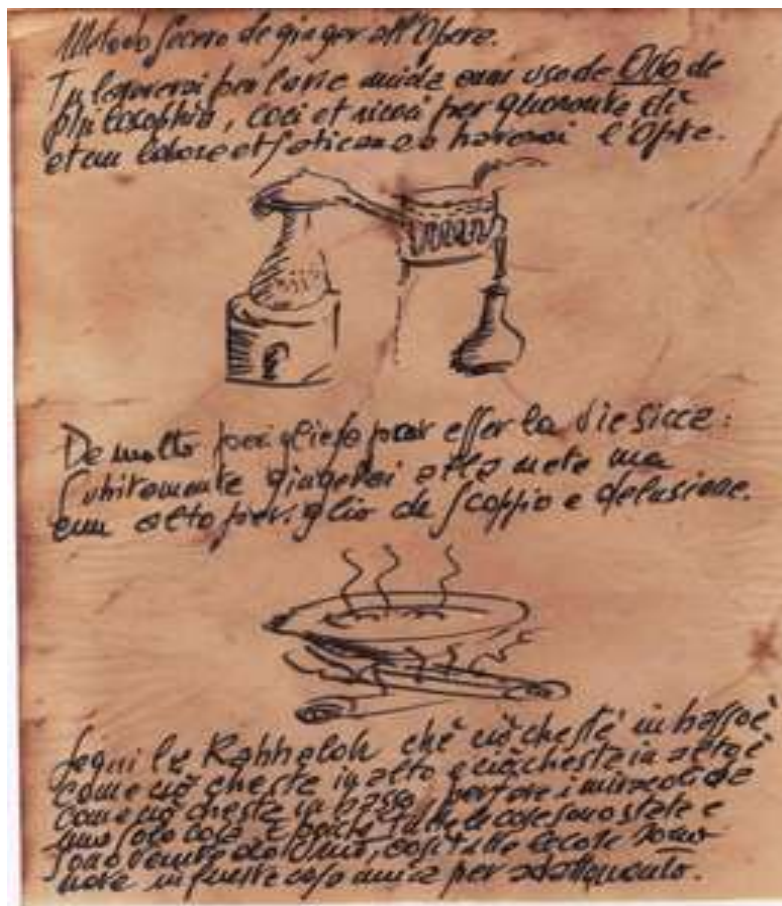 Metodo secero de ginger all'Opera.
Tu la via umida cum uso de Ovo de
Philosophia, coci et ricoci per quaranta dì
et cum labore et fatica haverai l'Opre.
De molto periglioso par esser la via sicca:
Subitamente giugerai alla meta ma
cum alto periglio de scoppio e delusione.
Segui la Kabbalah chè ciò che sta in basso è
come ciò che sta in alto e ciò che sta in alto è
come ciò che sta in basso, i miracoli de
una sola cosa. E tutte le cose sono state e
sono venute da Uno, così tutte le cose sono
nate in questa cosa unica per adattamento.